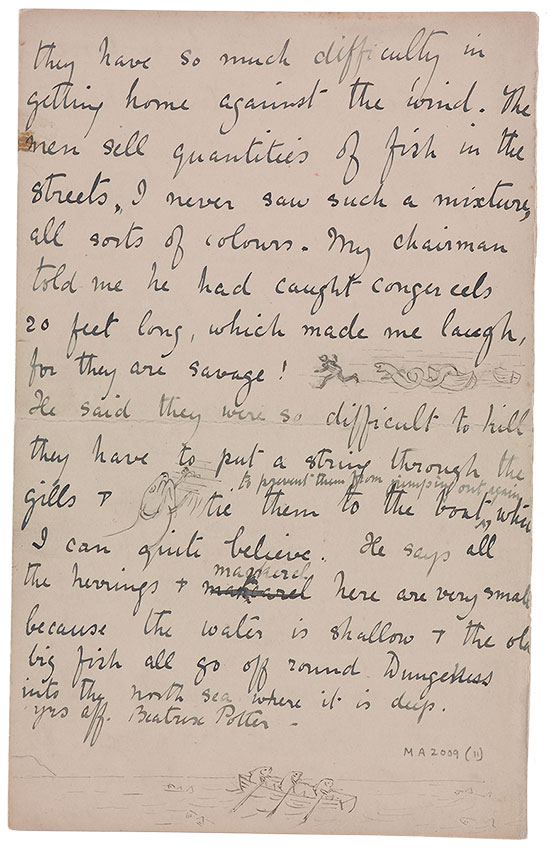 they have so much difficulty in
getting home against the wind. The
men sell quantities of fish in the
streets, I never saw such a mixture,
all sorts of colours. My chairman
told me he had caught conger eels
20 feet long, which made me laugh,
for they are savage!
He said they were so difficult to kill
they have to put a string through the
to prevent them from jumping out again
gills & tie them to the boat, which
I can quite believe. He says all
mackerel
the herrings & here are very small
because the water is shallow & the old
big fish all go off round Dungeness
into the north sea where it is deep.
yrs aff. Beatrix Potter -
MA2009 (11)